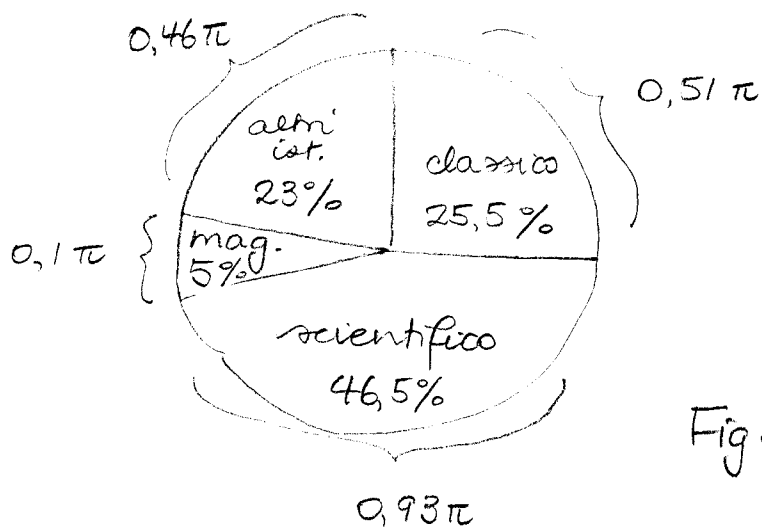 0,46 π
0,51 π
altri
ist.
23%
classico
25,5%
0,1 π
mag.
5%
scientifico
46,5%
Fig.
0,93 π